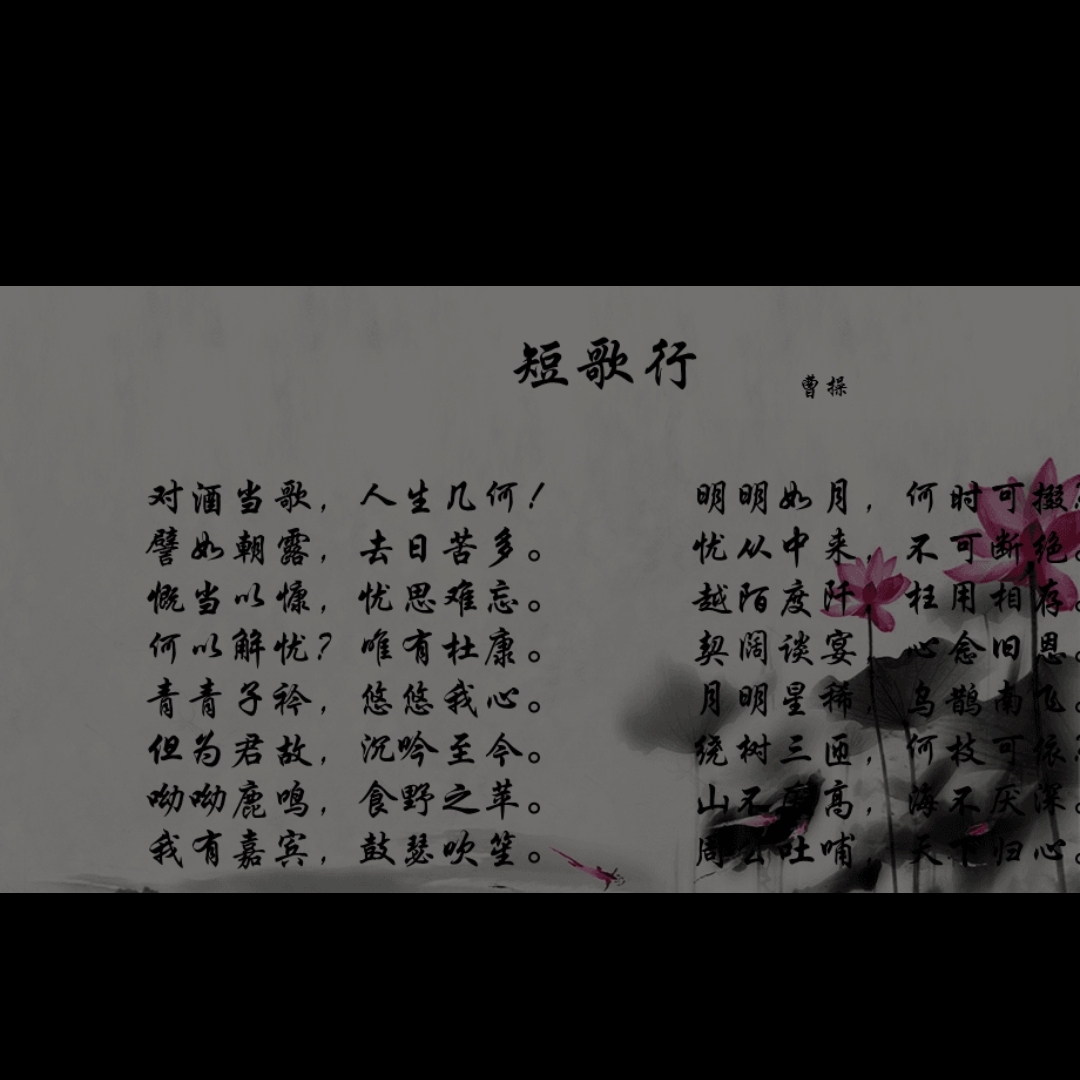 短歌行
曹操
对酒当歌，人生几何！
譬如朝露，去日苦多。
慨当以慷，忧思难忘。
何以解忧？唯有杜康。
青青子衿，悠悠我心。
但为君故，沉吟至今。
呦呦鹿鸣，食野之苹。
我有嘉宾，鼓瑟吹笙。
明明如月，何时可掇？
忧从中来，不可断绝。
越陌度阡，枉用相存。
契阔谈宴，心念旧恩。
月明星稀，乌鹊南飞。
绕树三匝，何枝可依？
山不厌高，海不厌深。
周公吐哺，天下归心。